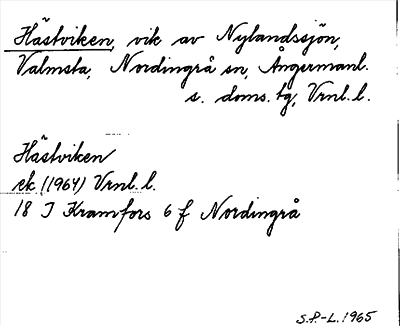 Hästviken, vik av Nylandssjön,
Valmsta, Nordingrå sn, Ångermanl.
s. doms. tg, Vrnl. l.
Hästviken
ek. (1964) Vrnl. l.
18 J Kramfors 6 f Nordingrå
S.P.-L. 1965